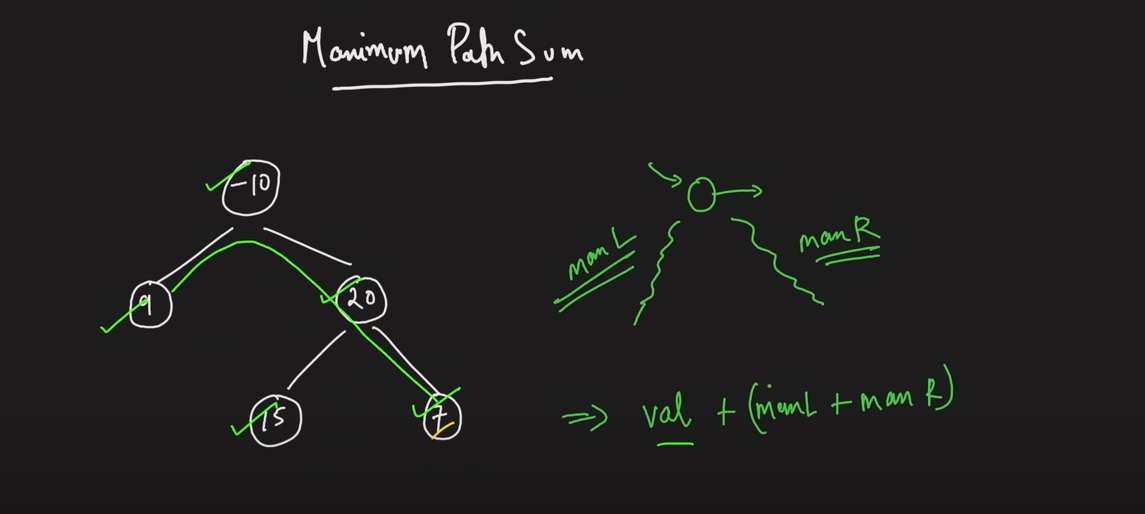 Maximum Path Sum
-10
9
20
15
7
maxL
maxR
=> val + (maxL + maxR)